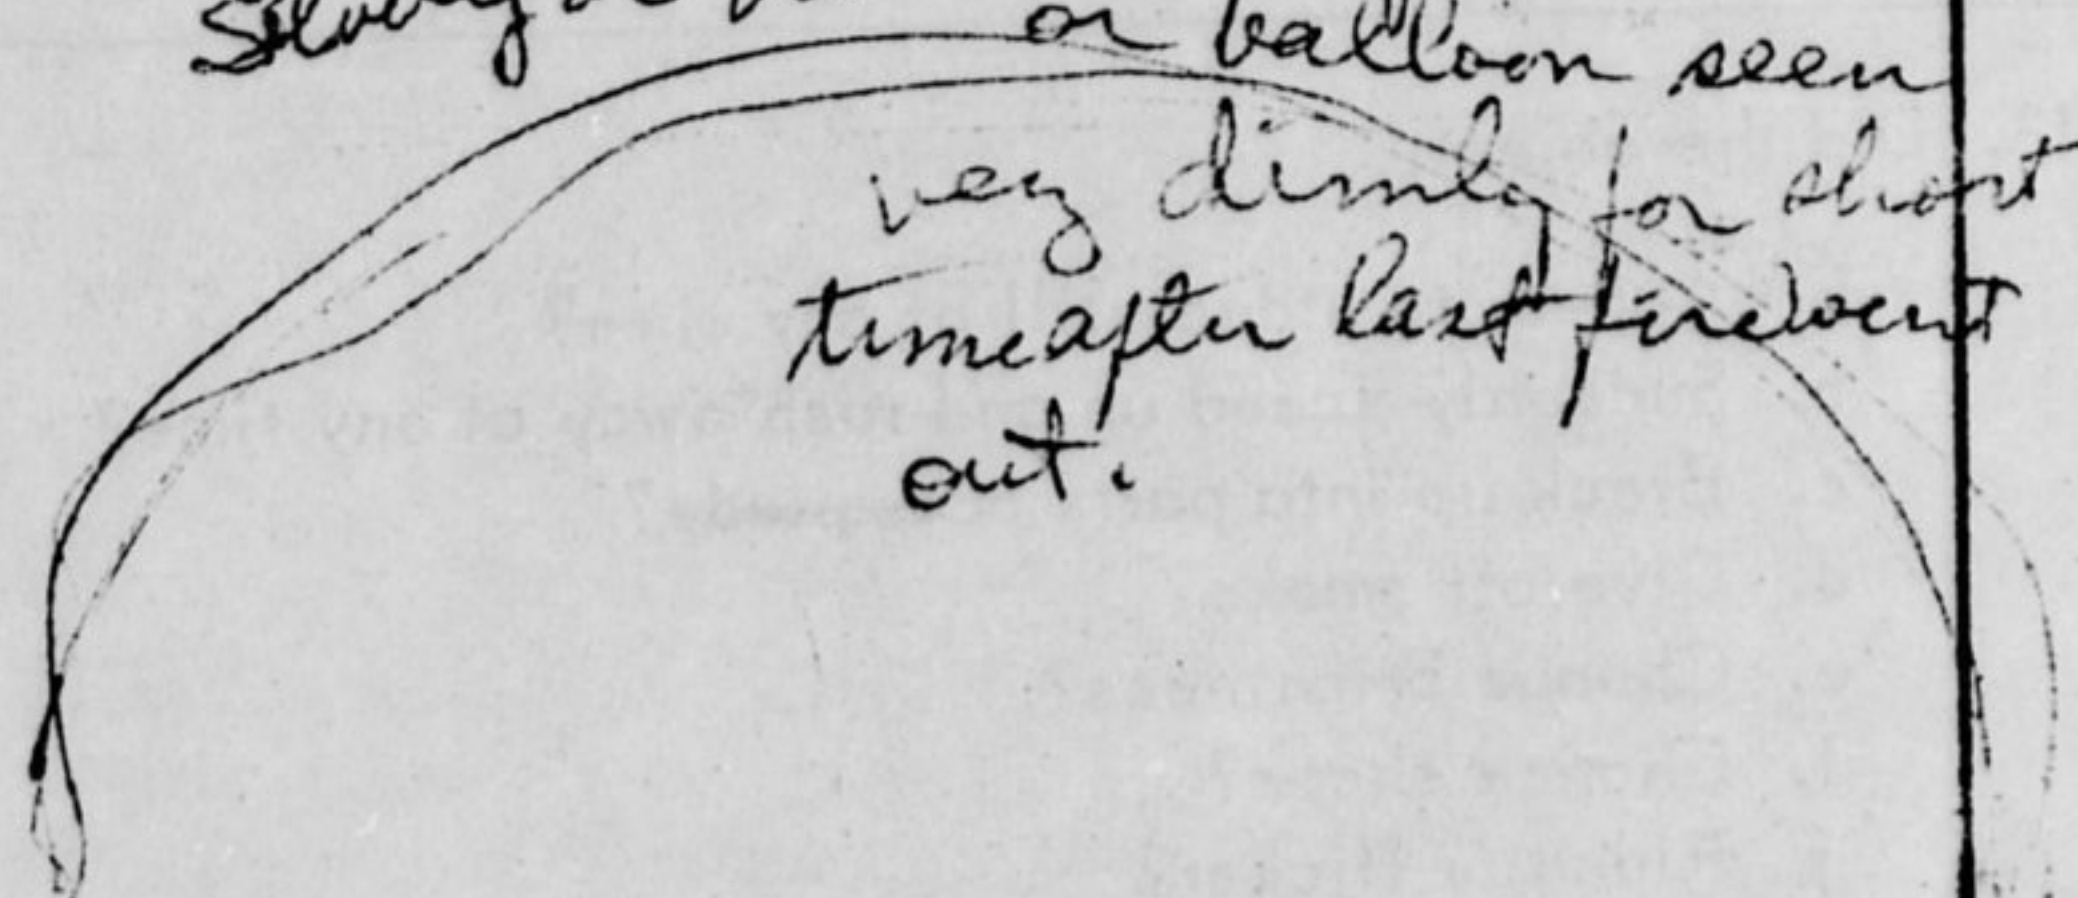 or balloon seen
very dimly for short
time after last fire went
out.